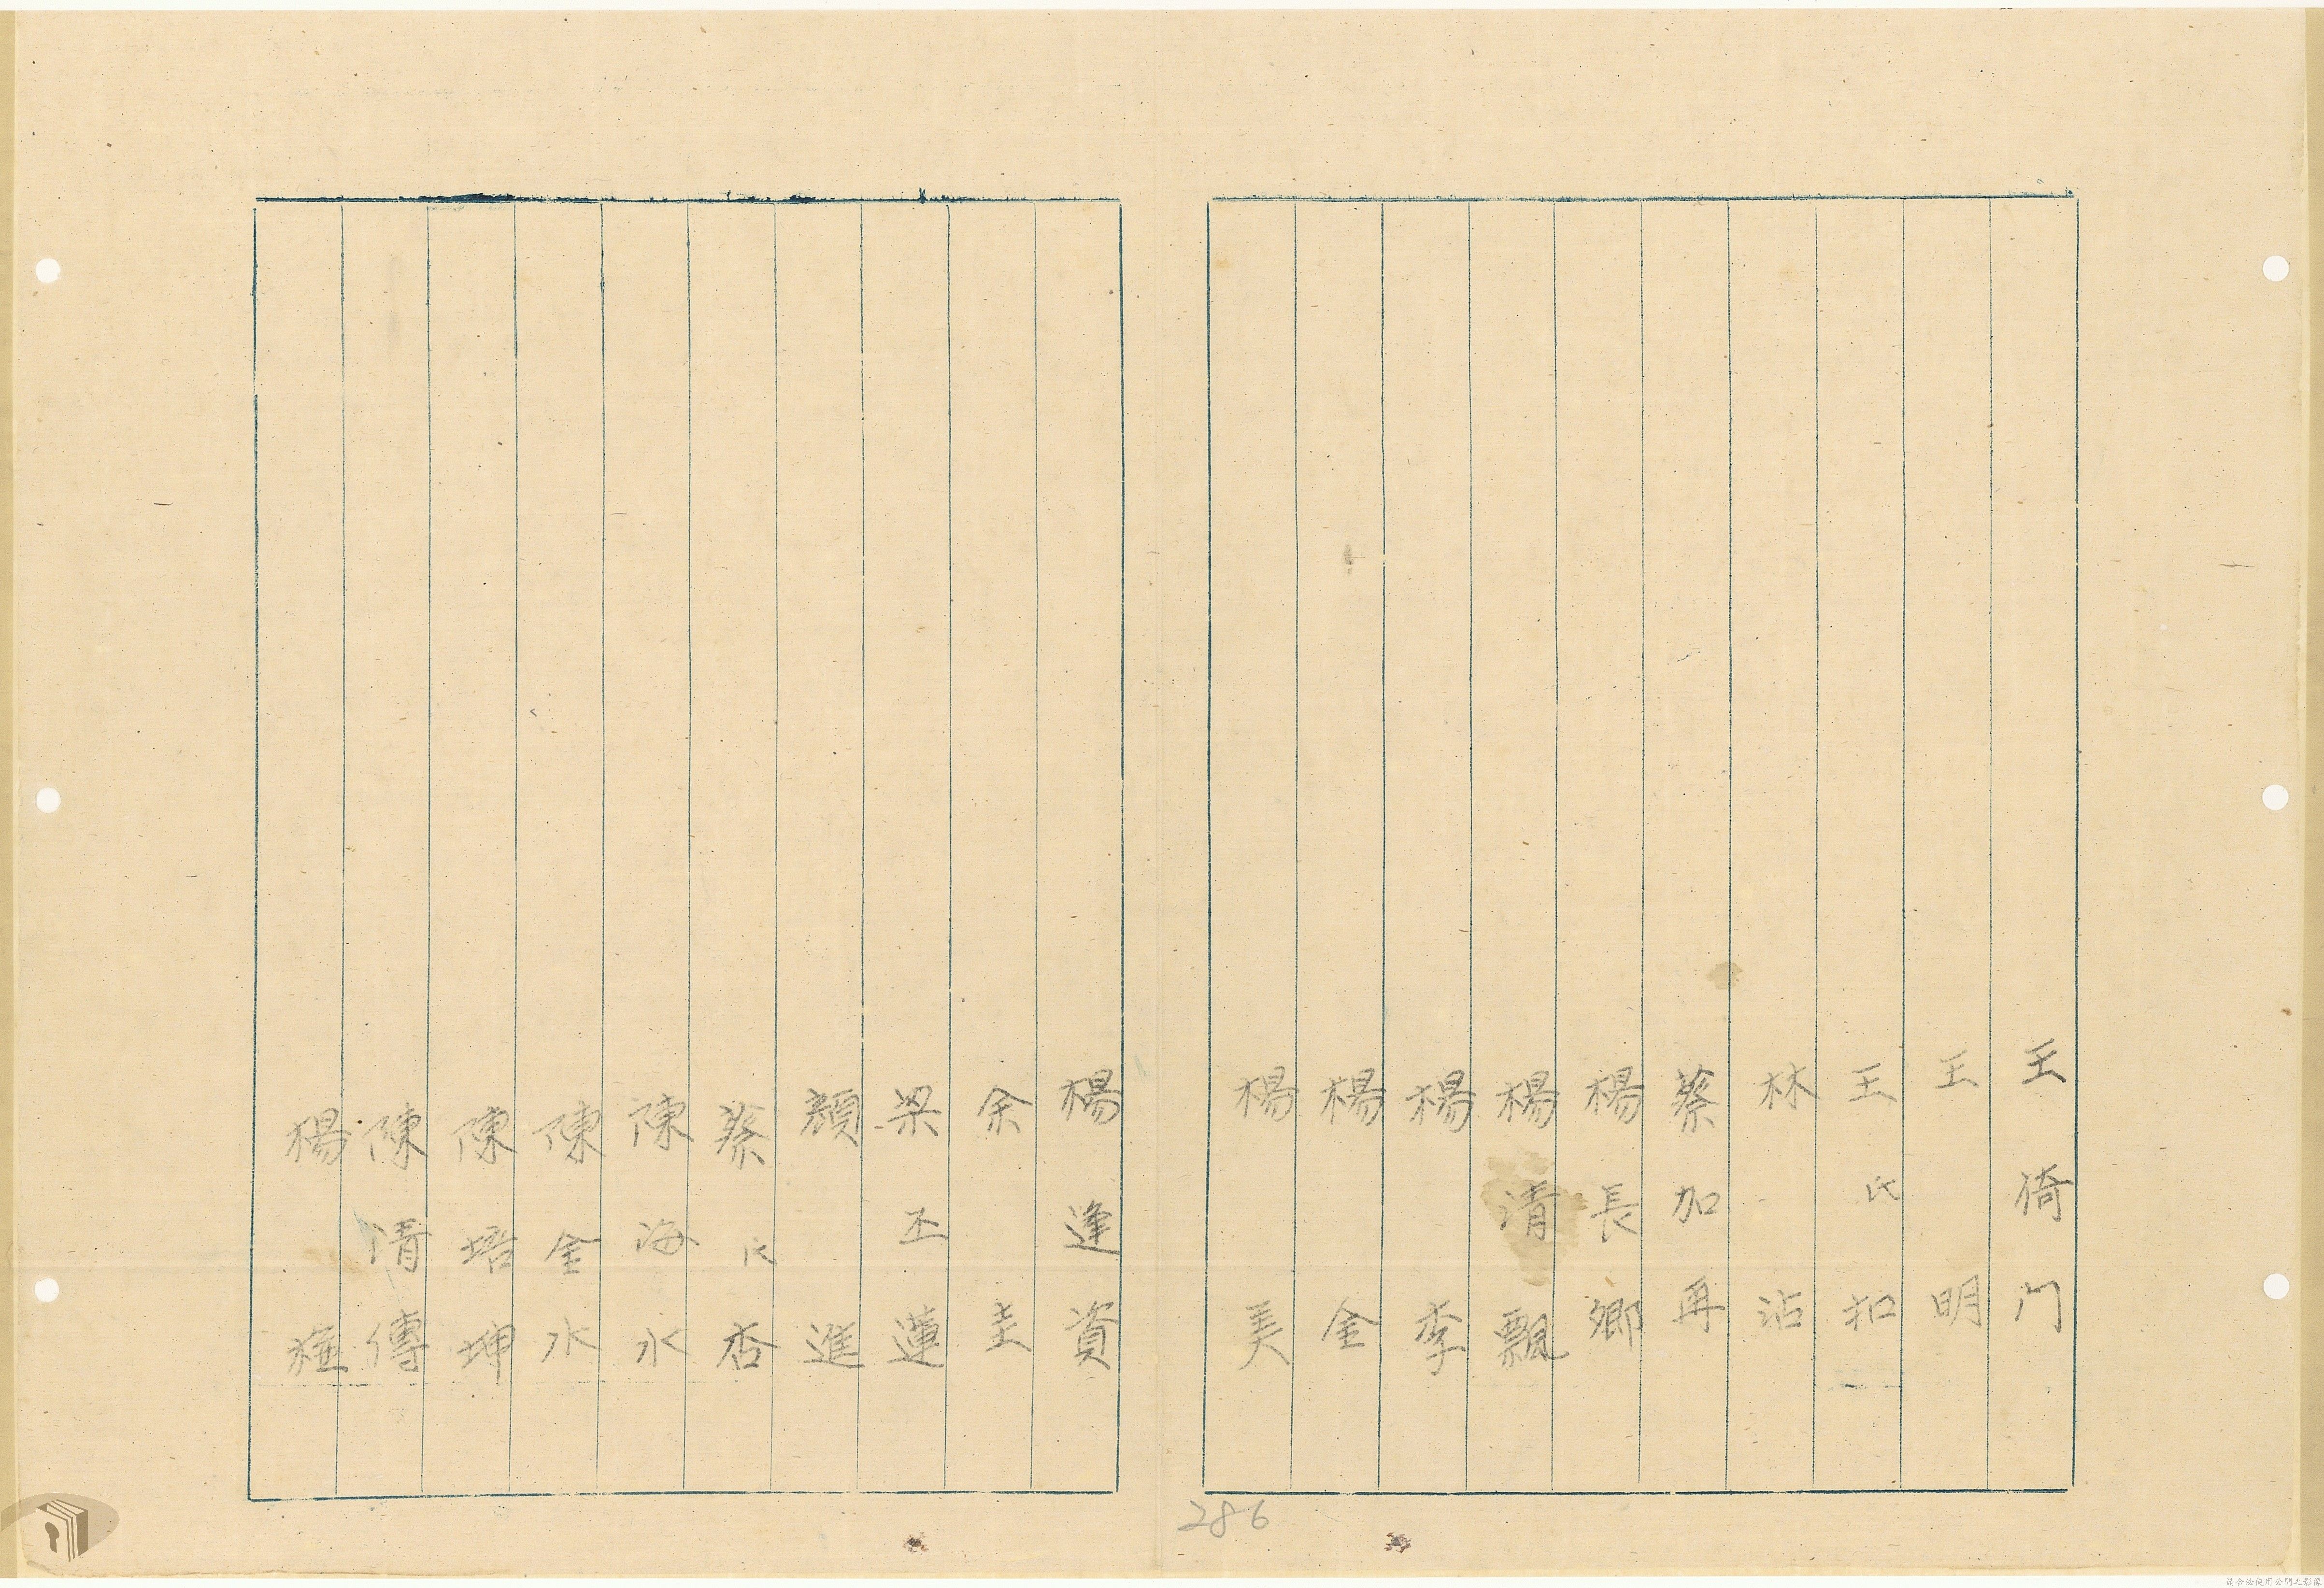 王倚門
王明
王氏扣
林沾
蔡加再
楊長鄉
楊清飄
楊李
楊金
楊美
楊逢資
余圭
梁丕蓮
顏進
蔡氏杏
陳海水
陳金水
陳培坤
陳清傳
楊
286
請合法使用公開之影像